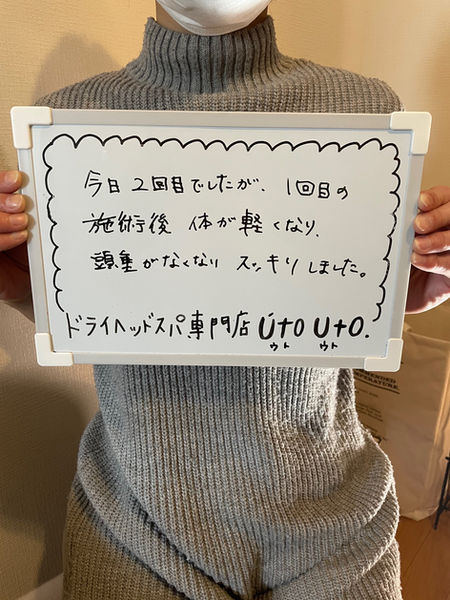 今日2回目でしたが、1回目の
施術後 体が軽くなり、
頭重がなくなり スッキリしました。
ドライヘッドスパ専門店 Uto Uto.
ウト ウト